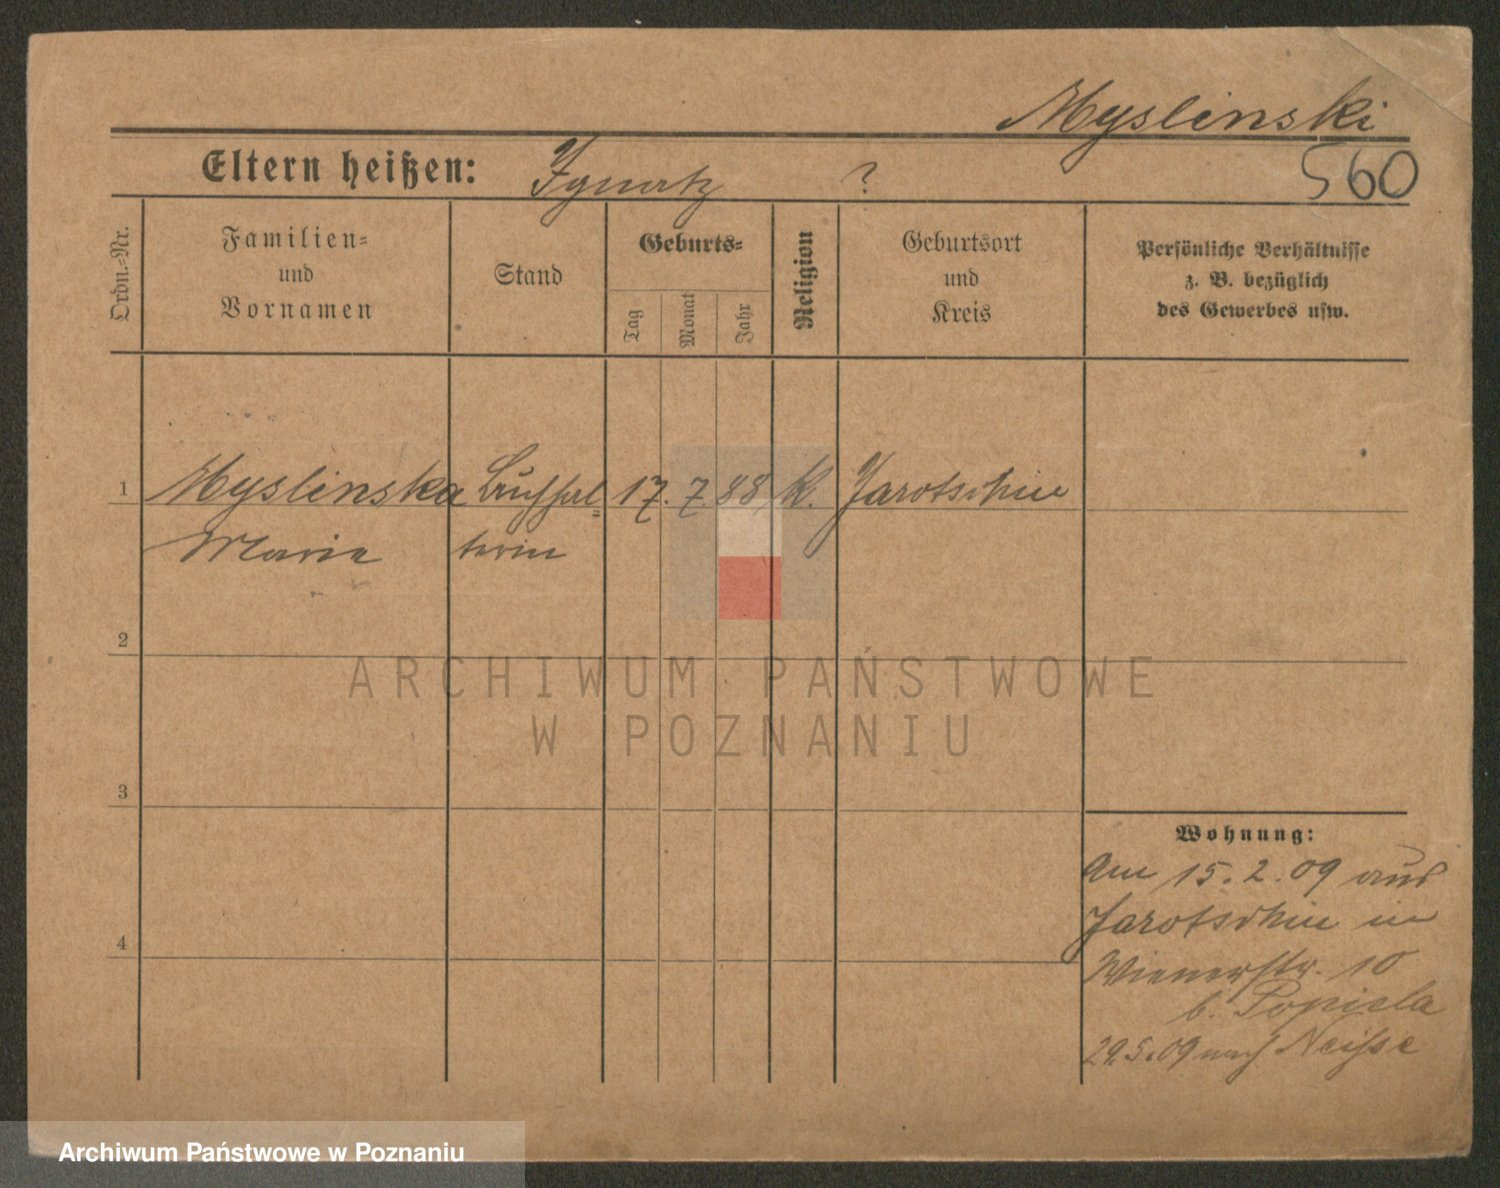 Myslinski
Eltern heißen: Ignatz ?
560
Ordn.-Nr.
Familien-
und
Vornamen
Stand
Geburts-
Tag
Monat
Jahr
Religion
Geburtsort
und
Kreis
Persönliche Verhältnisse
z. B. bezüglich
des Gewerbes usw.
1 Myslinska Buchhal= 17. 7. 88, K. Jarotschin
Maria terin
2
3
4
Wohnung:
Am 15. 2. 09 aus
Jarotschin in
Wienerstr. 10
b. Popiela
29.5.09 nach Neisse
ARCHIWUM PAŃSTWOWE
W POZNANIU
Archiwum Państwowe w Poznaniu